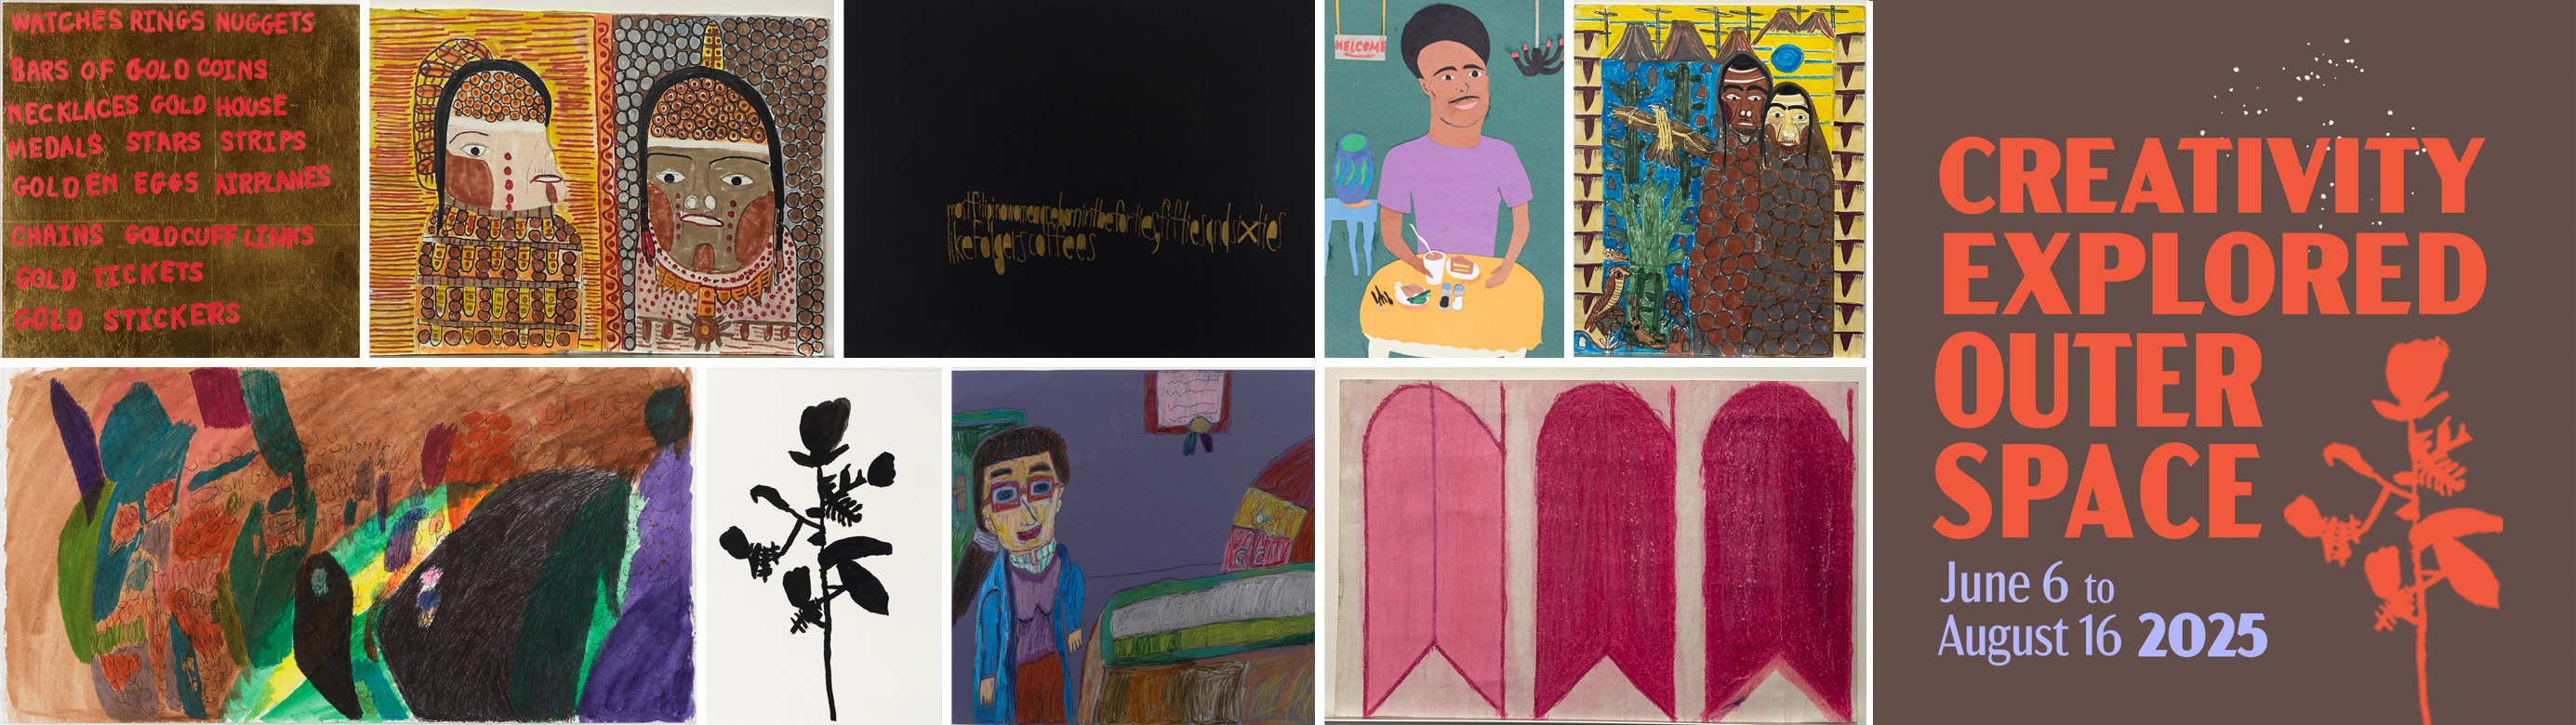 WATCHES RINGS NUGGETS
BARS OF GOLD COINS
NECKLACES GOLD HOUSE
MEDALS STARS STRIPS
GOLDEN EGGS AIRPLANES
CHAINS GOLD CUFF LINKS
GOLD TICKETS
GOLD STICKERS
mostfilipinowomenareborninthefortiesfiftiesandsixties
likefolgerscoffees
WELCOME
CREATIVITY
EXPLORED
OUTER
SPACE
June 6 to
August 16 2025